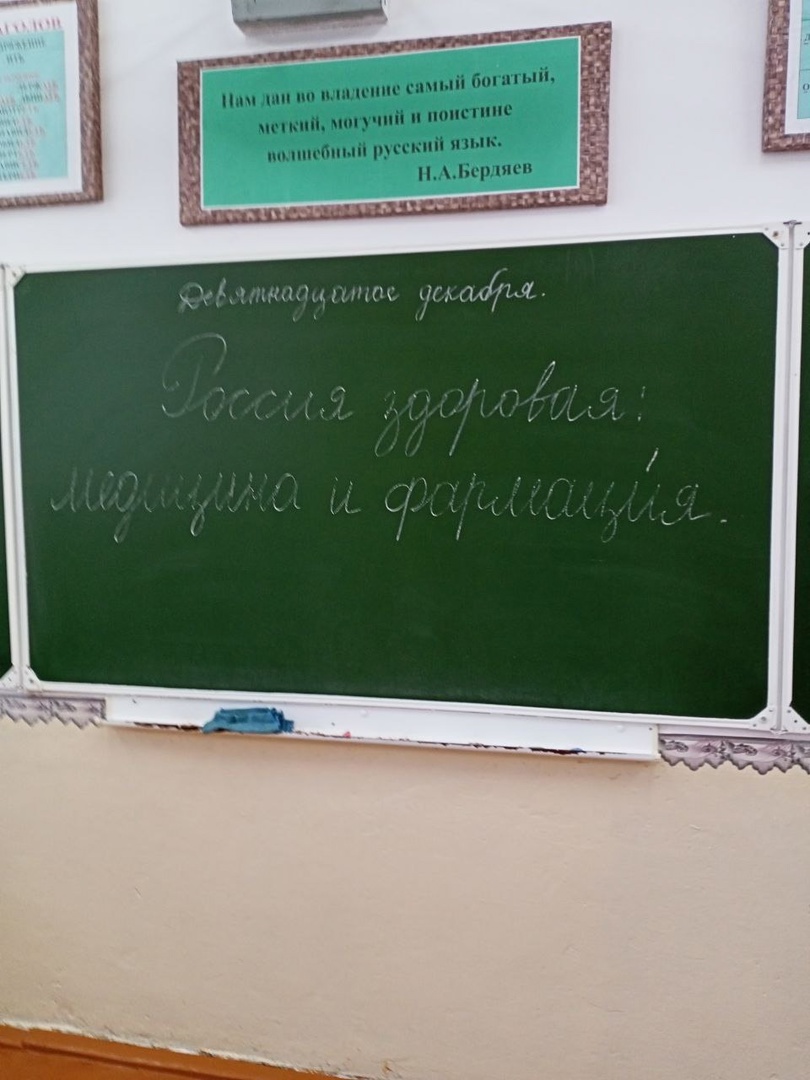 АГОЛОВ
Нам дан во владение самый богатый,
меткий, могучий и поистине
волшебный русский язык.
Н.А.Бердяев
Девятнадцатое декабря.
Россия здоровая:
медицина и фармаци́я.